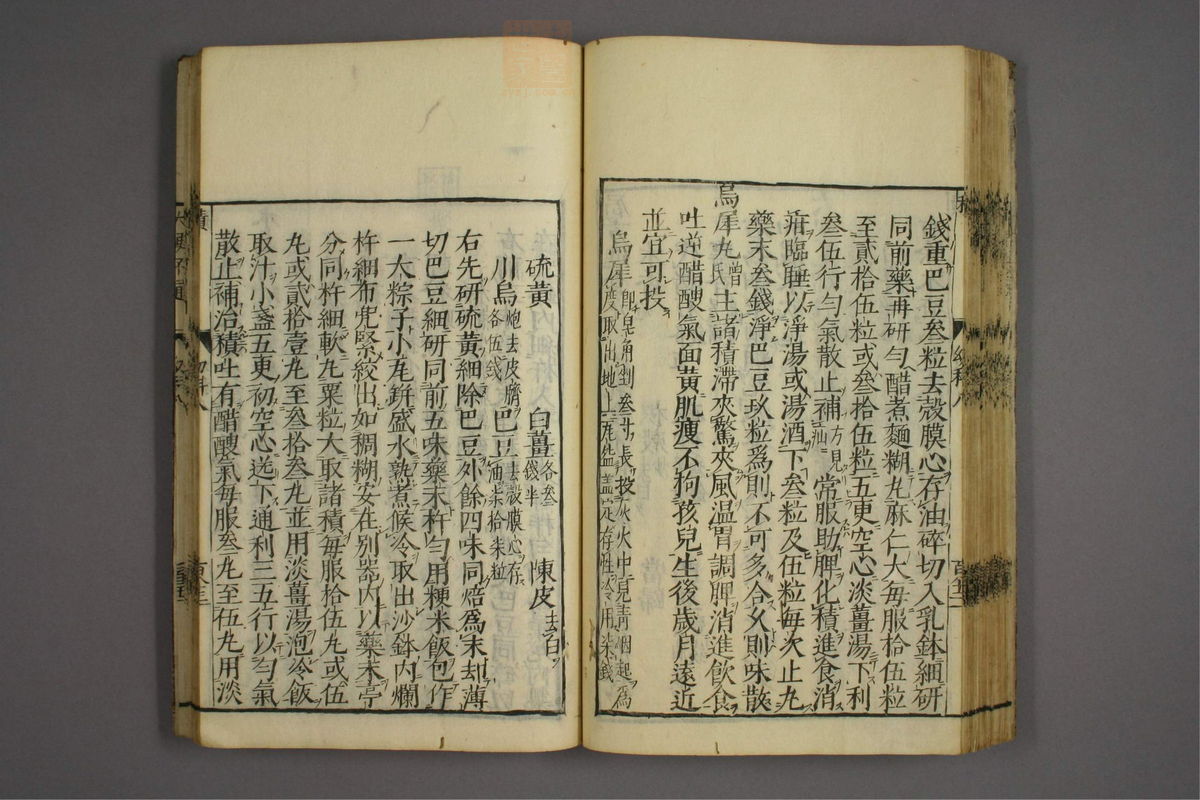 錢重巴豆叁粒去殼膜心存油碎切入乳鉢細研
同前藥再研勻醋煮麵糊丸麻仁大每服拾伍粒
至貳拾伍粒或叁拾伍粒五更空心淡薑湯下利
叁伍行勻氣散止補方見疝常服助脾化積進食消
疳臨睡以淨湯或湯酒下叁粒及伍粒每次止丸
藥末叁錢淨巴豆玖粒爲則不可多合久則味散
烏犀丸曾氏主諸積滯夾驚夾風温胃調脾消進飲食
吐逆醋醙氣面黃肌瘦不拘孩兒生後歲月遠近
並宜可投
烏犀即皂角剉叁寸長投灰火中見青烟起爲度取出地上瓦盞蓋定存性冷用柒錢
硫黃 白薑各叁錢半 陳皮去白
川烏炮去皮臍各伍錢 巴豆去殼膜心存油柒拾柒粒
右先研硫黃細除巴豆外餘四味同焙爲末却薄
切巴豆細研同前五味藥末杵勻用粳米飯包作
一大粽子小瓦缾盛水熟煮候冷取出沙鉢內爛
杵細布兜緊絞出如稠糊安在別器內以藥末亭
分同杵細軟丸粟粒大取諸積每服拾伍丸或伍
丸或貳拾壹丸至叁拾叁丸並用淡薑湯泡冷飯
取汁小盞五更初空心送下通利三五行以勻氣
散止補治積吐有醋醙氣每服叁丸至伍丸用淡